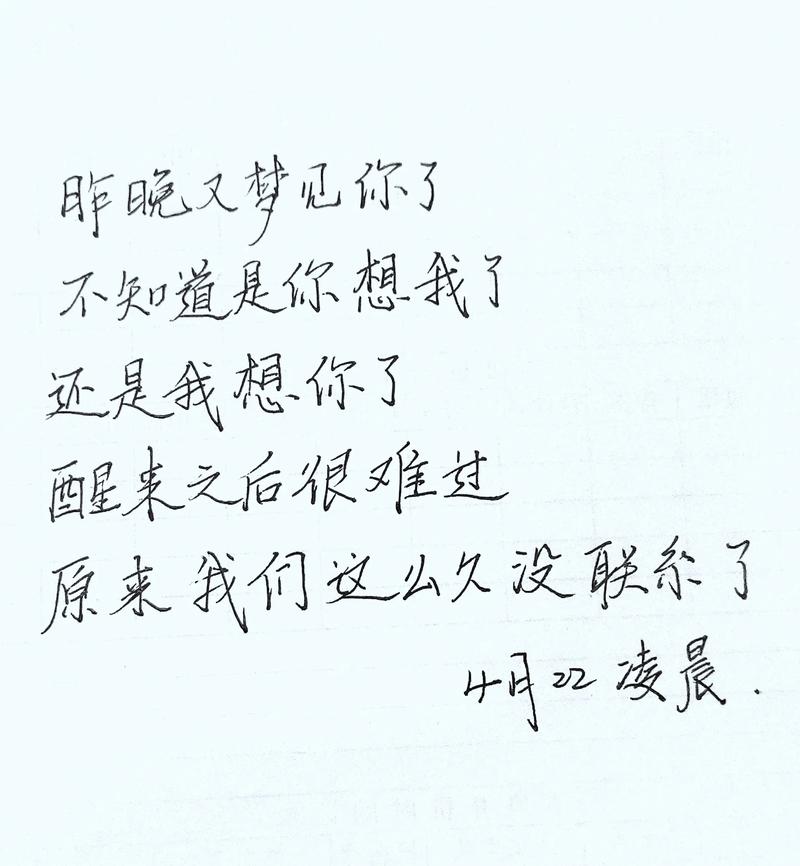 昨晚又梦见你了
不知道是你想我了
还是我想你了
醒来之后很难过
原来我们这么久没联系了
4月22凌晨.